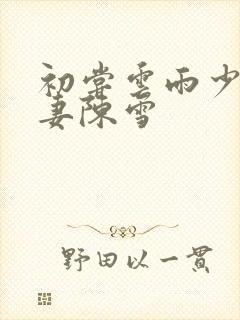 初尝雲雨少
妻陳雪
野田以一貫